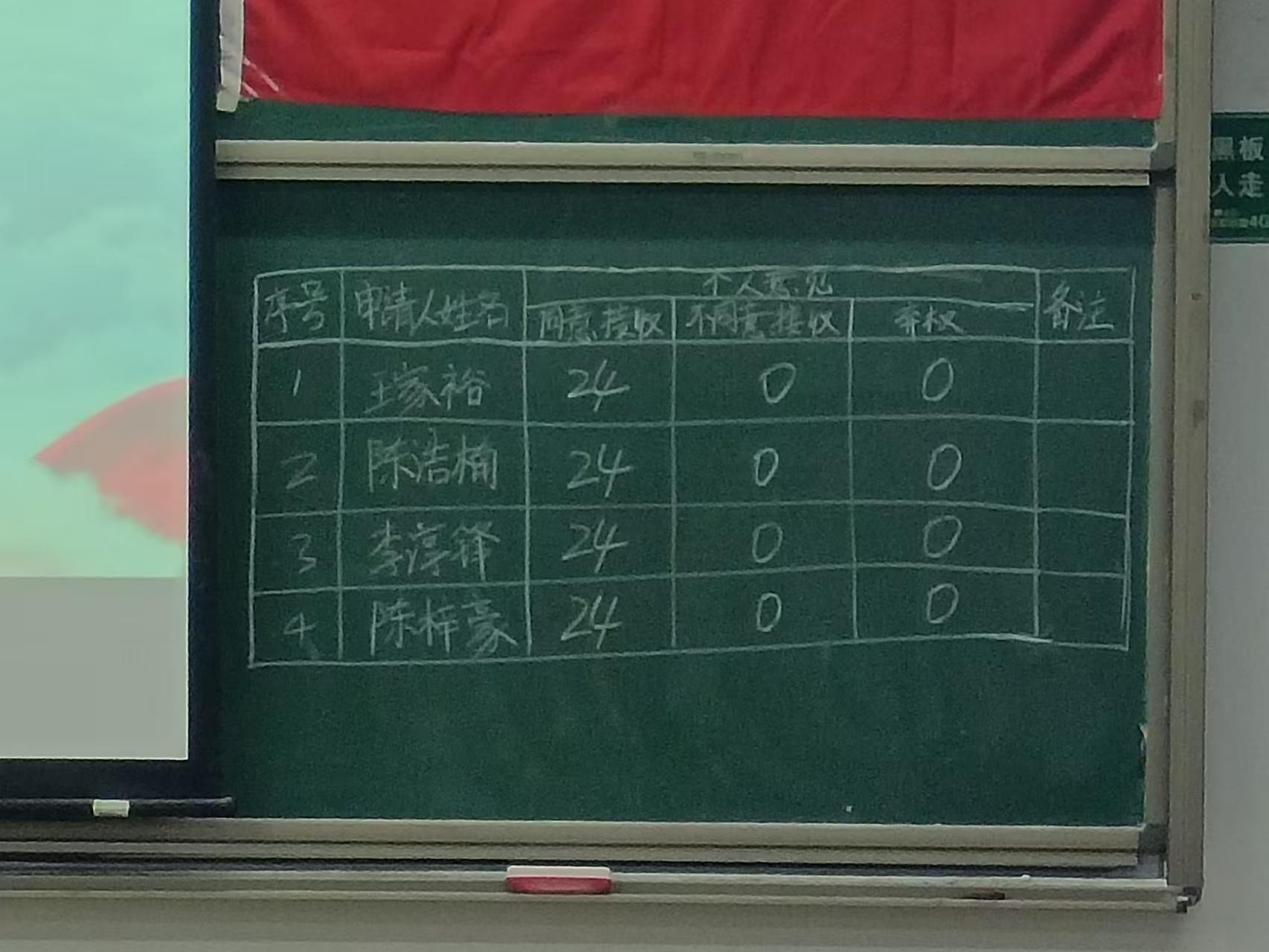 序号 申请人姓名 个人意见 备注
同意接收 不同意接收 弃权
1 王家裕 24 0 0
2 陈浩楠 24 0 0
3 李淳锋 24 0 0
4 陈梓豪 24 0 0
黑板
人走